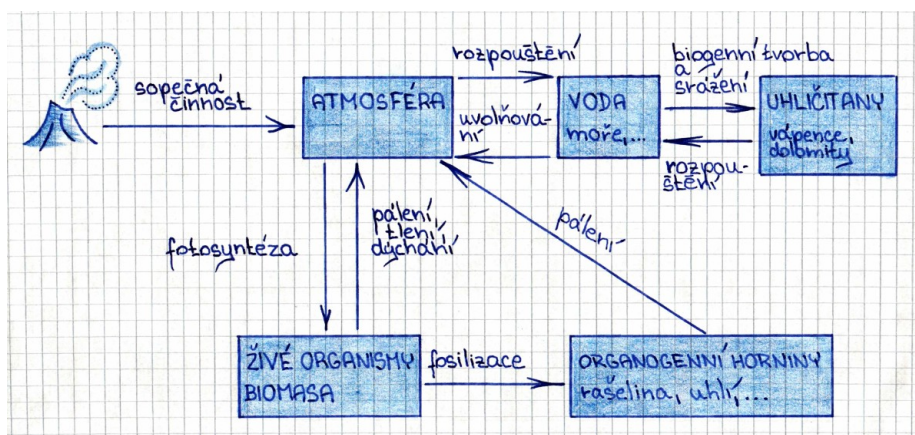 sopečná
činnost
ATMOSFÉRA
rozpouštění
uvolňová-
ní
VODA
moře,...
biogenní tvorba
a
srážení
UHLIČITANY
vápence,
dolomity
rozpou-
štění
fotosyntéza
pálení,
tlení,
dýchání
pálení
ŽIVÉ ORGANISMY
BIOMASA
fosilizace
ORGANOGENNÍ HORNINY
rašelina, uhlí,...